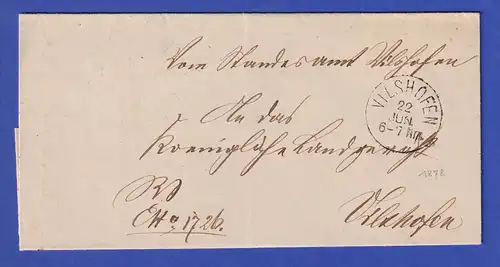 Vom Standesamt Vilshofen
VILSHOFEN
22
JUN.
6-7 NM.
An das
Koenigliche Landgericht
RS
No 1726.
1878
Vilshofen